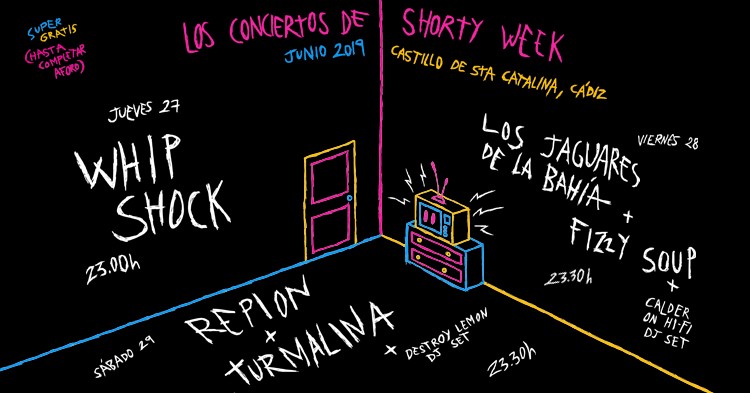 SUPER
GRATIS
(HASTA
COMPLETAR
AFORO)
LOS CONCIERTOS DE SHORTY WEEK
JUNIO 2019
CASTILLO DE STA CATALINA, CÁDIZ
JUEVES 27
WHIP
SHOCK
23.00h
VIERNES 28
LOS JAGUARES
DE LA BAHÍA
+
FIZZY SOUP
+
CALDER
ON HI-FI
DJ SET
23.30h
SÁBADO 29
REPION
+
TURMALINA
+ DESTROY LEMON
DJ SET
23.30h